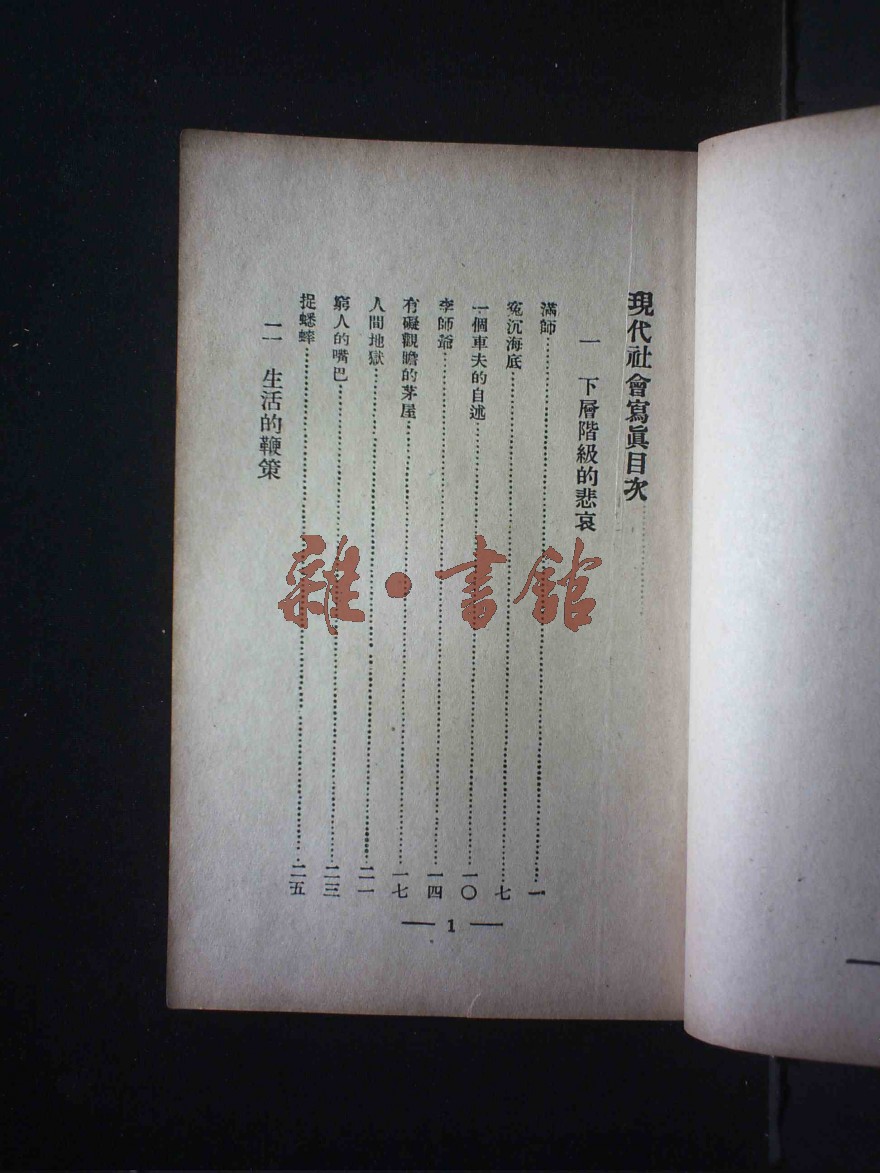 現代社會寫眞目次
一 下層階級的悲哀
滿師……一
冤沉海底……七
一個車夫的自述……一〇
李師爺……一四
有礙觀瞻的茅屋……一七
人間地獄……二一
窮人的嘴巴……二三
捉蟋蟀……二五
二 生活的鞭策
— 1 —
雜·書館